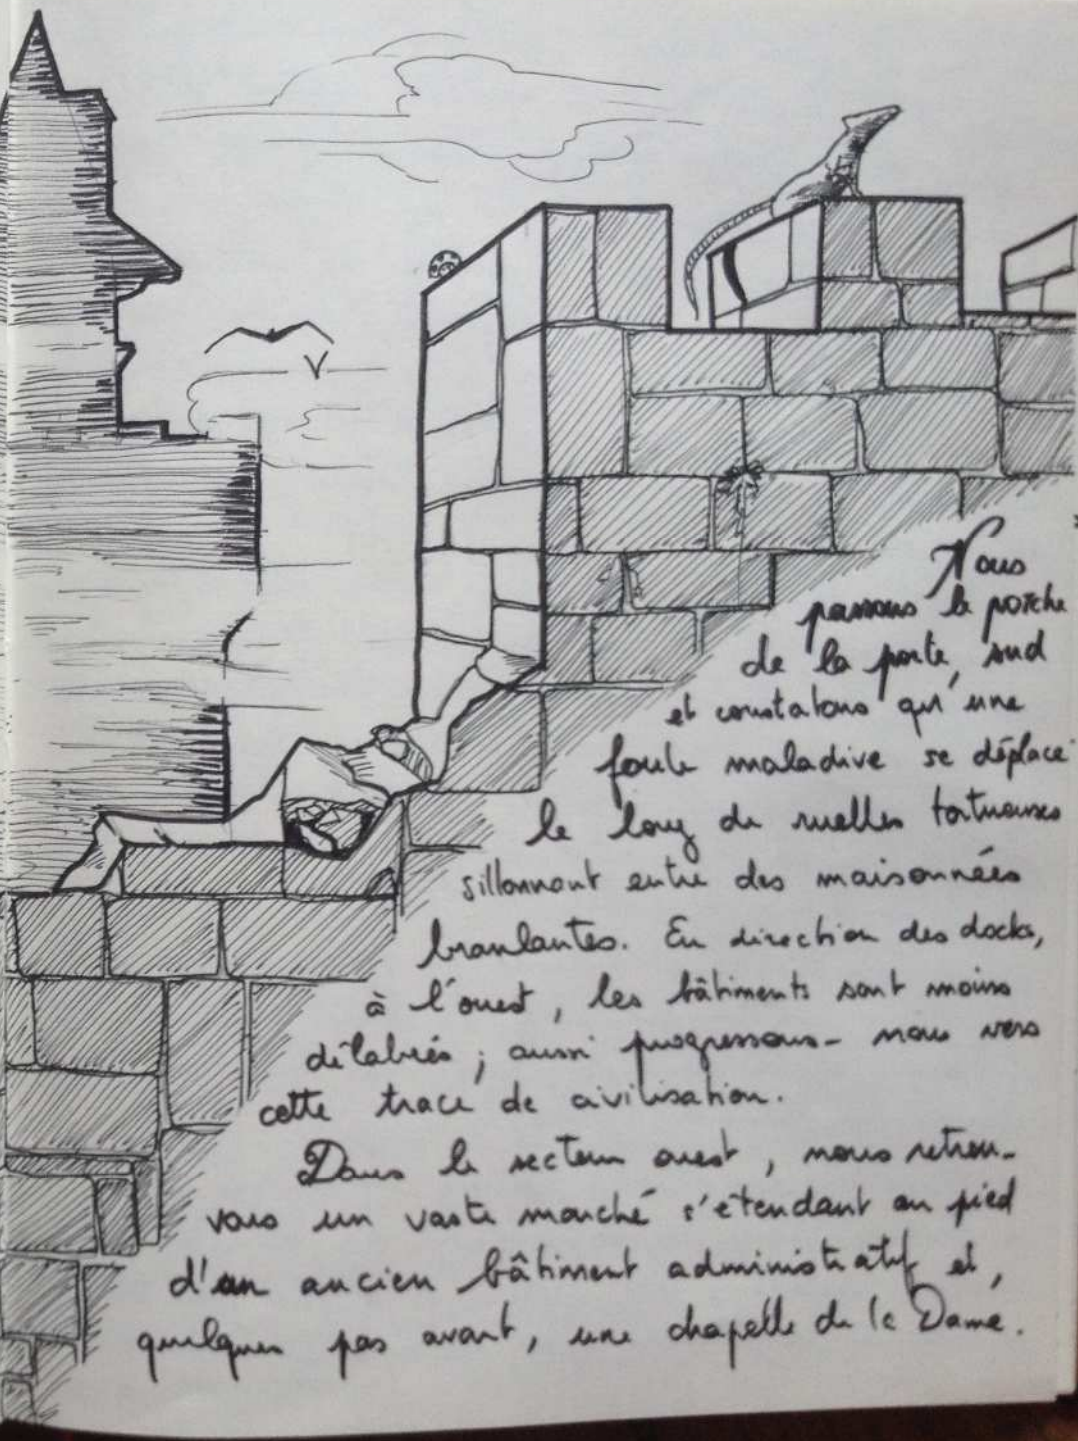 Nous
passons le porche
de la porte sud
et constatons qu'une
foule maladive se déplace
le long de ruelles tortueuses
sillonnant entre des maisonnées
branlantes. En direction des docks,
à l'ouest, les bâtiments sont moins
délabrés ; aussi progressons-nous vers
cette trace de civilisation.
Dans le secteur ouest, nous retrou-
vons un vaste marché s'étendant au pied
d'un ancien bâtiment administratif et,
quelques pas avant, une chapelle de la Dame.